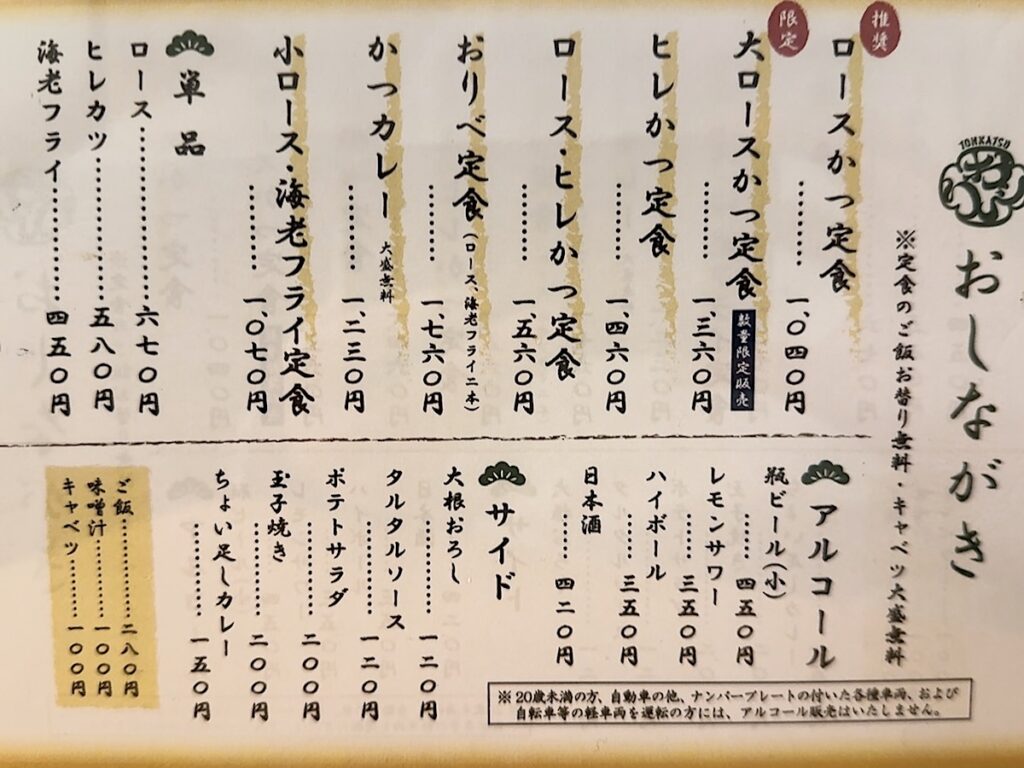 TONKATSU
おしながき
※定食のご飯お替り無料・キャベツ大盛無料
推奨
ロースかつ定食………一、〇四〇円
限定
大ロースかつ定食………一、三六〇円
数量限定販売
ヒレかつ定食………一、四六〇円
ロース・ヒレかつ定食………一、五六〇円
おりべ定食(ロース、海老フライ二本)………一、七六〇円
かつカレー 大盛無料………一、二三〇円
小ロース・海老フライ定食………一、〇七〇円
単品
ロース………六七〇円
ヒレカツ………五八〇円
海老フライ………四五〇円
アルコール
瓶ビール(小)………四五〇円
レモンサワー………三五〇円
ハイボール………三五〇円
日本酒………四二〇円
※20歳未満の方、自動車の他、ナンバープレートの付いた各種車両、および
自転車等の軽車両を運転の方には、アルコール販売はいたしません。
サイド
大根おろし………一二〇円
タルタルソース………一二〇円
ポテトサラダ………二〇〇円
玉子焼き………二〇〇円
ちょい足しカレー………一五〇円
ご飯………二八〇円
味噌汁………一〇〇円
キャベツ………一〇〇円